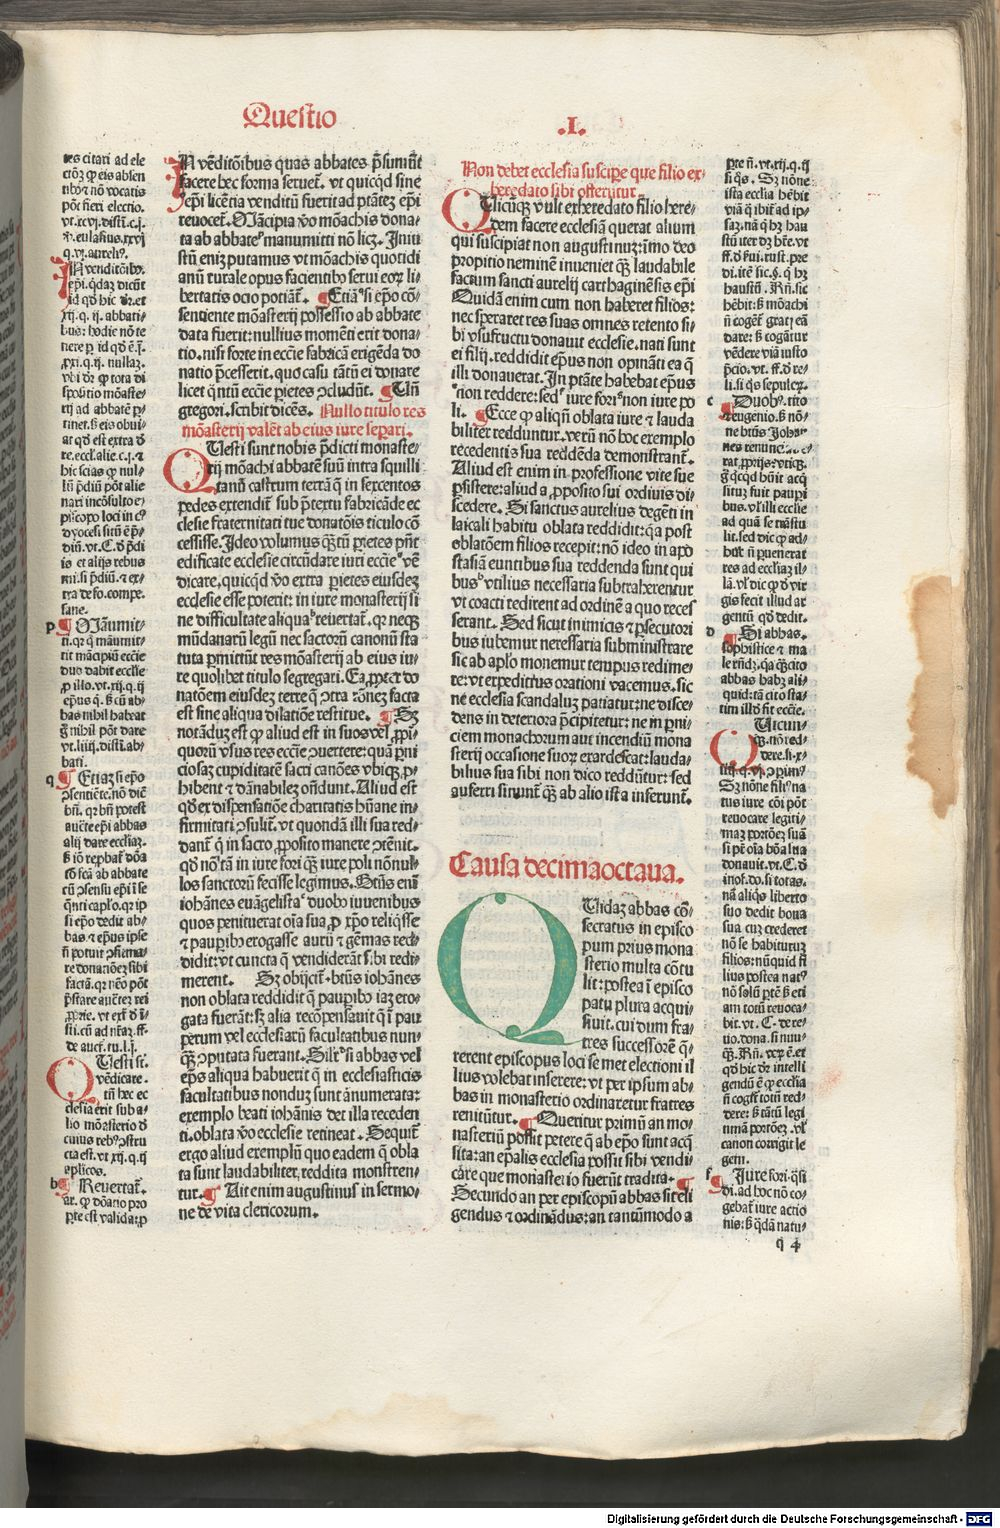 Questio
.I.
tes citari ad ele
ctōꝫ ꝙ eis absen
tibꝰ ⁊ nō vocatis
pōt fieri electio.
q.vj.aureliꝰ.
In vēditōibꝰ.
epi.q̄daꝫ dicūt
id qd̄ hic dr̄.et
xij.q.ij.abbati-
bus: hodie nō te
nere ꝓ id qd̄ ē.ſ.
xxi.q.ij.nullaꝫ.
vbi dr̄ ꝙ tota di
spōitio mōaste-
rij ad abbatē ꝑ-
tinet.ꝫ eis obui-
at qd̄ est extra d̄
re.eccl.alie.c.j.⁊
hic scias ꝙ nul-
lū p̄diū pōt alie
nari incōsulto e-
piscopo loci in cꝰ
dyocesi sitū ē p̄-
diū.vt.C.d̄ p̄di
is et alijs rebus
mi.si p̄diū.⁊ ex-
tra de fo.compe.
sane.
p Māumit-
ti.qꝛ q̄ māumit-
tit mācipiū eccīe
duo dabit ecclīe
ꝓ illo.vt.xij.q.ij
ep̄us q̄.ꝫ cū ab-
bas nihil habeat
g̊ nihil pōt dare
vt.liiij.distī.ab-
bati.
q Etiaꝫ si ep̄o
ↄsentiēte.nō dic̄
bn̄.qꝛ bn̄ potest
auc̄te ep̄i abbas
alij dare eccliaꝫ.
sō fcā ab abbate
cū ↄsensu ep̄i ⁊ se
q̄nti capl̓o.qꝛ ip
si ep̄o dedit ab-
bas ⁊ ep̄us ipse
n̄ potuit ↄfirma-
re donatōeꝫ sibi
factā.qꝛ nec̄ pōt
p̄stare auc̄teꝫ rei
ꝓprie.
de auct.tu.l.j.
Questi sī.
vēdicare.
tn̄ hec ec
clesia erit sub a-
lio mōasterio d̄
cuius rebꝰ ↄstru
cta est.vt.xij.q.ij
aplicos.
b Reuertat̄.
ar.ꝙ dōatio pro
ꝑte est valida:ꝓ
In vēditōibus quas abbates p̄sumūt
facere hec forma seruet̄.vt quicqd̄ sine
ep̄i licētia venditū fuerit ad ptātez ep̄i
reuocet̄.Mācipia v̊o mōachis dona-
ta ab abbate manumitti nō licꝫ.Iniu
stū eniꝫ putamus vt mōachis quotidi
anū rurale opus facientibꝰ serui eoꝝ li-
bertatis ocio potiāt̄. Etiā si ep̄o cō-
sentiente mōasterij possessio ab abbate
data fuerit:nullius momēti erit dona-
tio.nisi forte in ecc̄ie fabricā erigēda do
natio p̄cesserit.quo casu tātū ei donare
licet q̄ntū ecc̄ie ꝑietes ↄcludūt. Un̄
gregori.scribit dicēs. Nullo titulo res
mōasterij valēt ab eius iure separi.
Questi sunt nobis p̄dicti monaste-
rij mōachi abbatē suū intra squilli
tanū castrum terrā q̄ in sexcentos
pedes extendit̄ sub p̄textu fabricāde ec
clesie fraternitati tue donatōis ticulo cō
cessisse.Ideo volumus q̄ꝫtū ꝑietes pn̄t
edificate ecclesie circūdare iuri ecc̄ie vē
dicare,quicqd̄ v̊o extra ꝑietes eiusdeꝫ
ecclesie esse poterit:in iure monasterij si
ne difficultate aliqua reuertat̄.qꝛ neqꝫ
mūdanaꝝ legū nec sactorū canonū sta
tuta ꝑmittūt res mōasterij ab eius iu-
re quolibet titulo segregari.Ea,ꝓpter do
natōem eiusdeꝫ terre q̄ ↄtra rōneꝫ facta
est sine aliqua dilatiōe restitue. Sꝫ
notādūꝫ est ꝙ aliud est in suos vel ꝓpī-
quorū vsus res ecc̄ie ↄuertere:quā ꝑni
ciosaꝫ cupiditatē sacri canōes vbicqꝫ ꝓ-
hibent ⁊ dānabileꝫ oñdunt.Aliud est
qd̄ ex dispensatiōe charitatis hūane in-
firmitati ↄsulit̄.vt quondā illi sua red-
dant̄ q̄ in sacro,ꝓposito manere ↄtēnit̄.
qd̄ nō tm̄ in iure fori qꝫ iure poli nōnul-
los sanctorū fecisse legimus.Btūs eni
iohānes euāgelista duobꝰ iuuenibus
quos penituerat oīa sua,ꝓ xp̄o reliq̄sse
⁊ pauꝑibꝰ erogasse aurū ⁊ gēmas red-
didit:vt cuncta q̄ vendiderāt sibi redi-
merent. Sꝫ obijcit̄.btūs iohānes
non oblata reddidit q̄ pauꝑibꝰ iaꝫ ero-
gata fuerāt:sꝫ alia recōpensauit q̄ ī pau
perum vel ecclesiarū facultatibus nun-
qꝫ ↄputata fuerant.Silr̄ n̄ abbas vel
ep̄s aliqua habuerit q̄ in ecclesiasticis
facultatibus nonduꝫ sunt ānumerata:
exemplo beati iohānis det illa receden
ti.oblata v̊o ecclesie retineat.Sequit̄
ergo aliud exemplū quo eadem q̄ obla
ta sunt laudabiliter,reddita monstren-
tur. Ait enim augustinus in sermo-
ne de vita clericorum.
Non debet ecclesia suscipe que filio ex-
heredato sibi offerutur
Quicūqꝫ vult exheredato filio here-
dem facere ecclesiā querat alium
qui suscipiat non augustinuꝫ:īmo deo
propitio neminē inueniet qꝫ laudabile
factum sancti aurelij carthaginēsis ep̄i
Quidā enim cum non haberet filios:
nec speraret res suas omnes retento si-
bi vsufructu donauit ecclesie.nati sunt
ei filij.reddidit ep̄us non opināti ea q̄
illi donauerat.In ptāte habebat ep̄us
non reddere:sed iure fori non iure po
li. Ecce ꝙ aliqn̄ oblata iure ⁊ lauda
biliter redduntur.verū nō hoc exemplo
recedentis sua reddēda demonstrant̄.
Aliud est enim in professione vite sue
ꝑsistere:aliud a,ꝓposito sui ordinis di-
scedere.Si sanctus aurelius degēti in
laicali habitu oblata reddidit:q̄a post
oblatōem filios recepit:nō ideo in apo
stasiā euntibus sua reddenda sunt qui
bus vtilius necessaria subtraherentur
vt coacti redirent ad ordinē a quo reces
serant.Sed sicut inimicis ⁊ ꝑsecutori
bus iubemur necessaria subministrare
sic ab apl̓o monemur tempus redime-
re:vt expeditius orationi vacemus.sic
ne ecclesia scandaluꝫ patiatur:ne disce-
dens in deteriora p̄cipitetur:ne in ꝑni-
ciem monachorum aut incendiū mona
sterij occasione suoꝝ exardescat:lauda-
bilius sua sibi non dico reddūtur:sed
auferri sinunt̄ qꝫ ab alio ista inserunt̄.
Causa decimaoctaua.
Quidaꝫ abbas cō-
secratus in episco
pum prius mona
sterio multa cōtu
lit:postea ī episco
patu plura acqui
siuit.cui dum fra-
tres successorē q̄-
rerent episcopus loci se met electioni il
lius volebat inserere:vt per ipsum ab-
bas in monasterio ordinaretur fratres
renitūtur. Queritur primū an mo-
nasteriū possit petere q̄ ab ep̄o sunt acq̄
sita:an ep̄alis ecclesia possit sibi vendi-
care que monasterio fuerūt tradita.
Secundo an per episcopū abbas sit eli
gendus ⁊ ordināndus:an tantūmodo a
ꝑte n̄.vt.xij.q.ij
si q̄s. Sꝫ nōne
ista ecclīa hēbit
viā q̄ ibit̄ ad ip-
saꝫ.nā q̄ hꝫ hau
stū iter dꝫ hr̄e.vt
ff.d̄ ẜui.rust.pre
di.itē sic.§.q hꝫ
haustū.Rn̄.sic
hēbit:ꝫ mōachi
n̄ cogēt̄ gratꝭ eā
dare:ꝫ cogātur
vēdere viā iusto
p̄cio.vt.ff.d̄ re-
li.si q̄s sepulcꝝ.
c Duobꝰ.tito
⁊ eugenio.ꝫ nō-
ne btūs Johan-
rat,ꝓprijs:vtiqꝫ.
g̊ q̄cqd̄ hūit acq̄
situꝫ fuit pauꝑi
bus.vl̓ illi ecclīe
ad quā se trāstu
lit.sed dic ꝙ ad-
huc n̄ ꝑuenerāt
res ad eccliaꝫ il-
lā.vl̓ dic ꝙ d̄ vir
gis fecit illud ar
gentū qd̄ dedit.
d Si abbas.
sophistice ⁊ ma
le rn̄dꝫ.q̄a q̄cito
abbas habꝫ ali-
quid:tā cito sta-
tim illd̄ fit ecc̄ie.
Quicun-
qꝫ.nō red-
dere.si.x-
iiij.q.vj.ↄꝑimꝰ
Sꝫ nōne filiꝰ na
tus iure cōi pōt
reuocare legiti-
maꝫ portōeꝫ suā
si p̄r oīa bōa sua
donauit.vt.C.d̄
inof.do.si totas.
nā aliqs̄ liberto
suo dedit bona
sua cuꝫ crederet
nō se habiturꝫ
filios:nūquid fi
lius postea natꝰ
nō solū ꝑtē ꝫ eti
am totū reuoca-
bit.vt.C.de re-
uo.dona.si nun-
qꝫ.
qd̄ hic dr̄ intelli
gendū ē ꝙ ecclīa
n̄ cogit̄ totū red-
dere:ꝫ tātū legi
timā portōeꝫ.vl̓
canon corrigit le
gem.
f Iure fori.q̄si
di.ad hoc nō co-
gebat̄ iure actio
nis:ꝫ q̄dā natu-
q 4
Digitalisierung gefördert durch die Deutsche Forschungsgemeinschaft - DFG